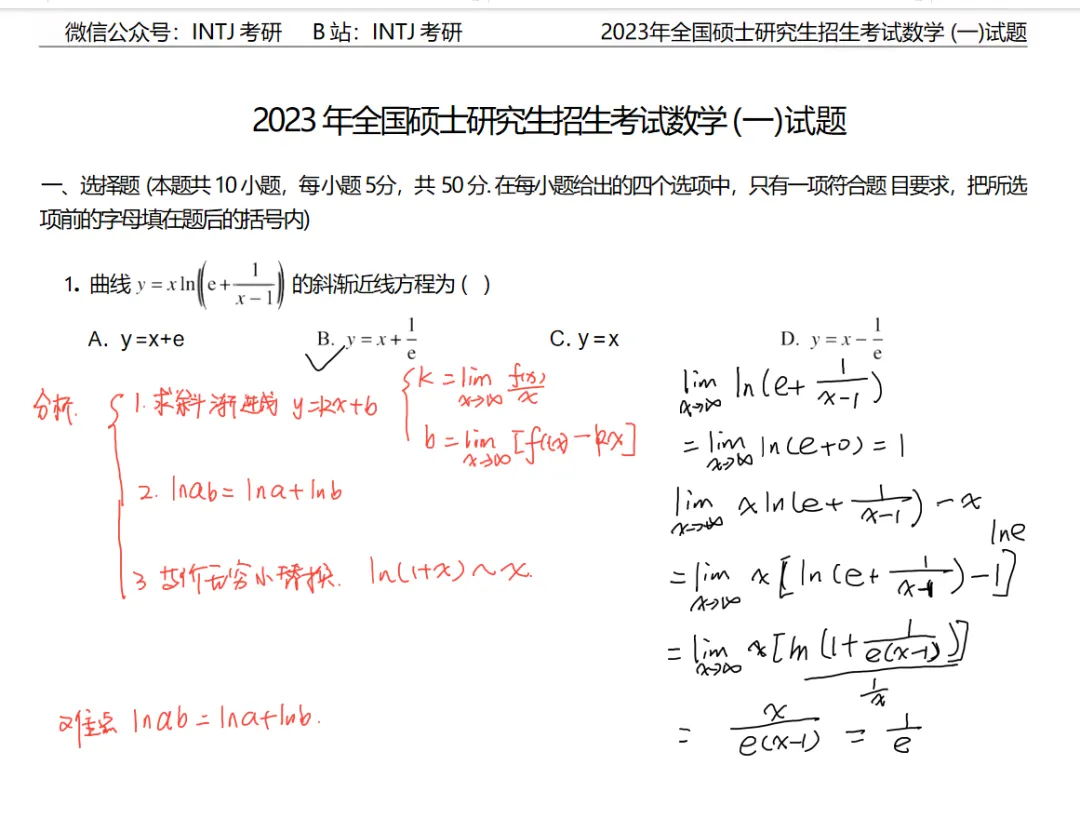 微信公众号：INTJ 考研 B 站：INTJ 考研 2023年全国硕士研究生招生考试数学 (一)试题
2023 年全国硕士研究生招生考试数学 (一)试题
一、选择题 (本题共 10 小题，每小题 5分，共 50 分. 在每小题给出的四个选项中，只有一项符合题 目要求，把所选
项前的字母填在题后的括号内)
1. 曲线 y = x ln(e + 1/(x − 1)) 的斜渐近线方程为 ( )
A. y=x+e B. y = x + 1/e C. y = x D. y = x − 1/e
分析. 1. 求斜渐近线 y=kx+b
k = lim x→∞ f(x)/x
b = lim x→∞ [f(x) − kx]
2. lnab = lna + lnb
3 等价无穷小替换. ln(1+x) ~ x.
难点 lnab = lna + lnb.
lim x→∞ ln(e + 1/(x−1))
= lim x→∞ ln(e+0) = 1
lim x→∞ x ln(e + 1/(x−1)) − x
lne
= lim x→∞ x [ln(e + 1/(x−1)) − 1]
= lim x→∞ x [ln(1 + 1/(e(x−1)))]
1/x
= x/(e(x−1)) = 1/e